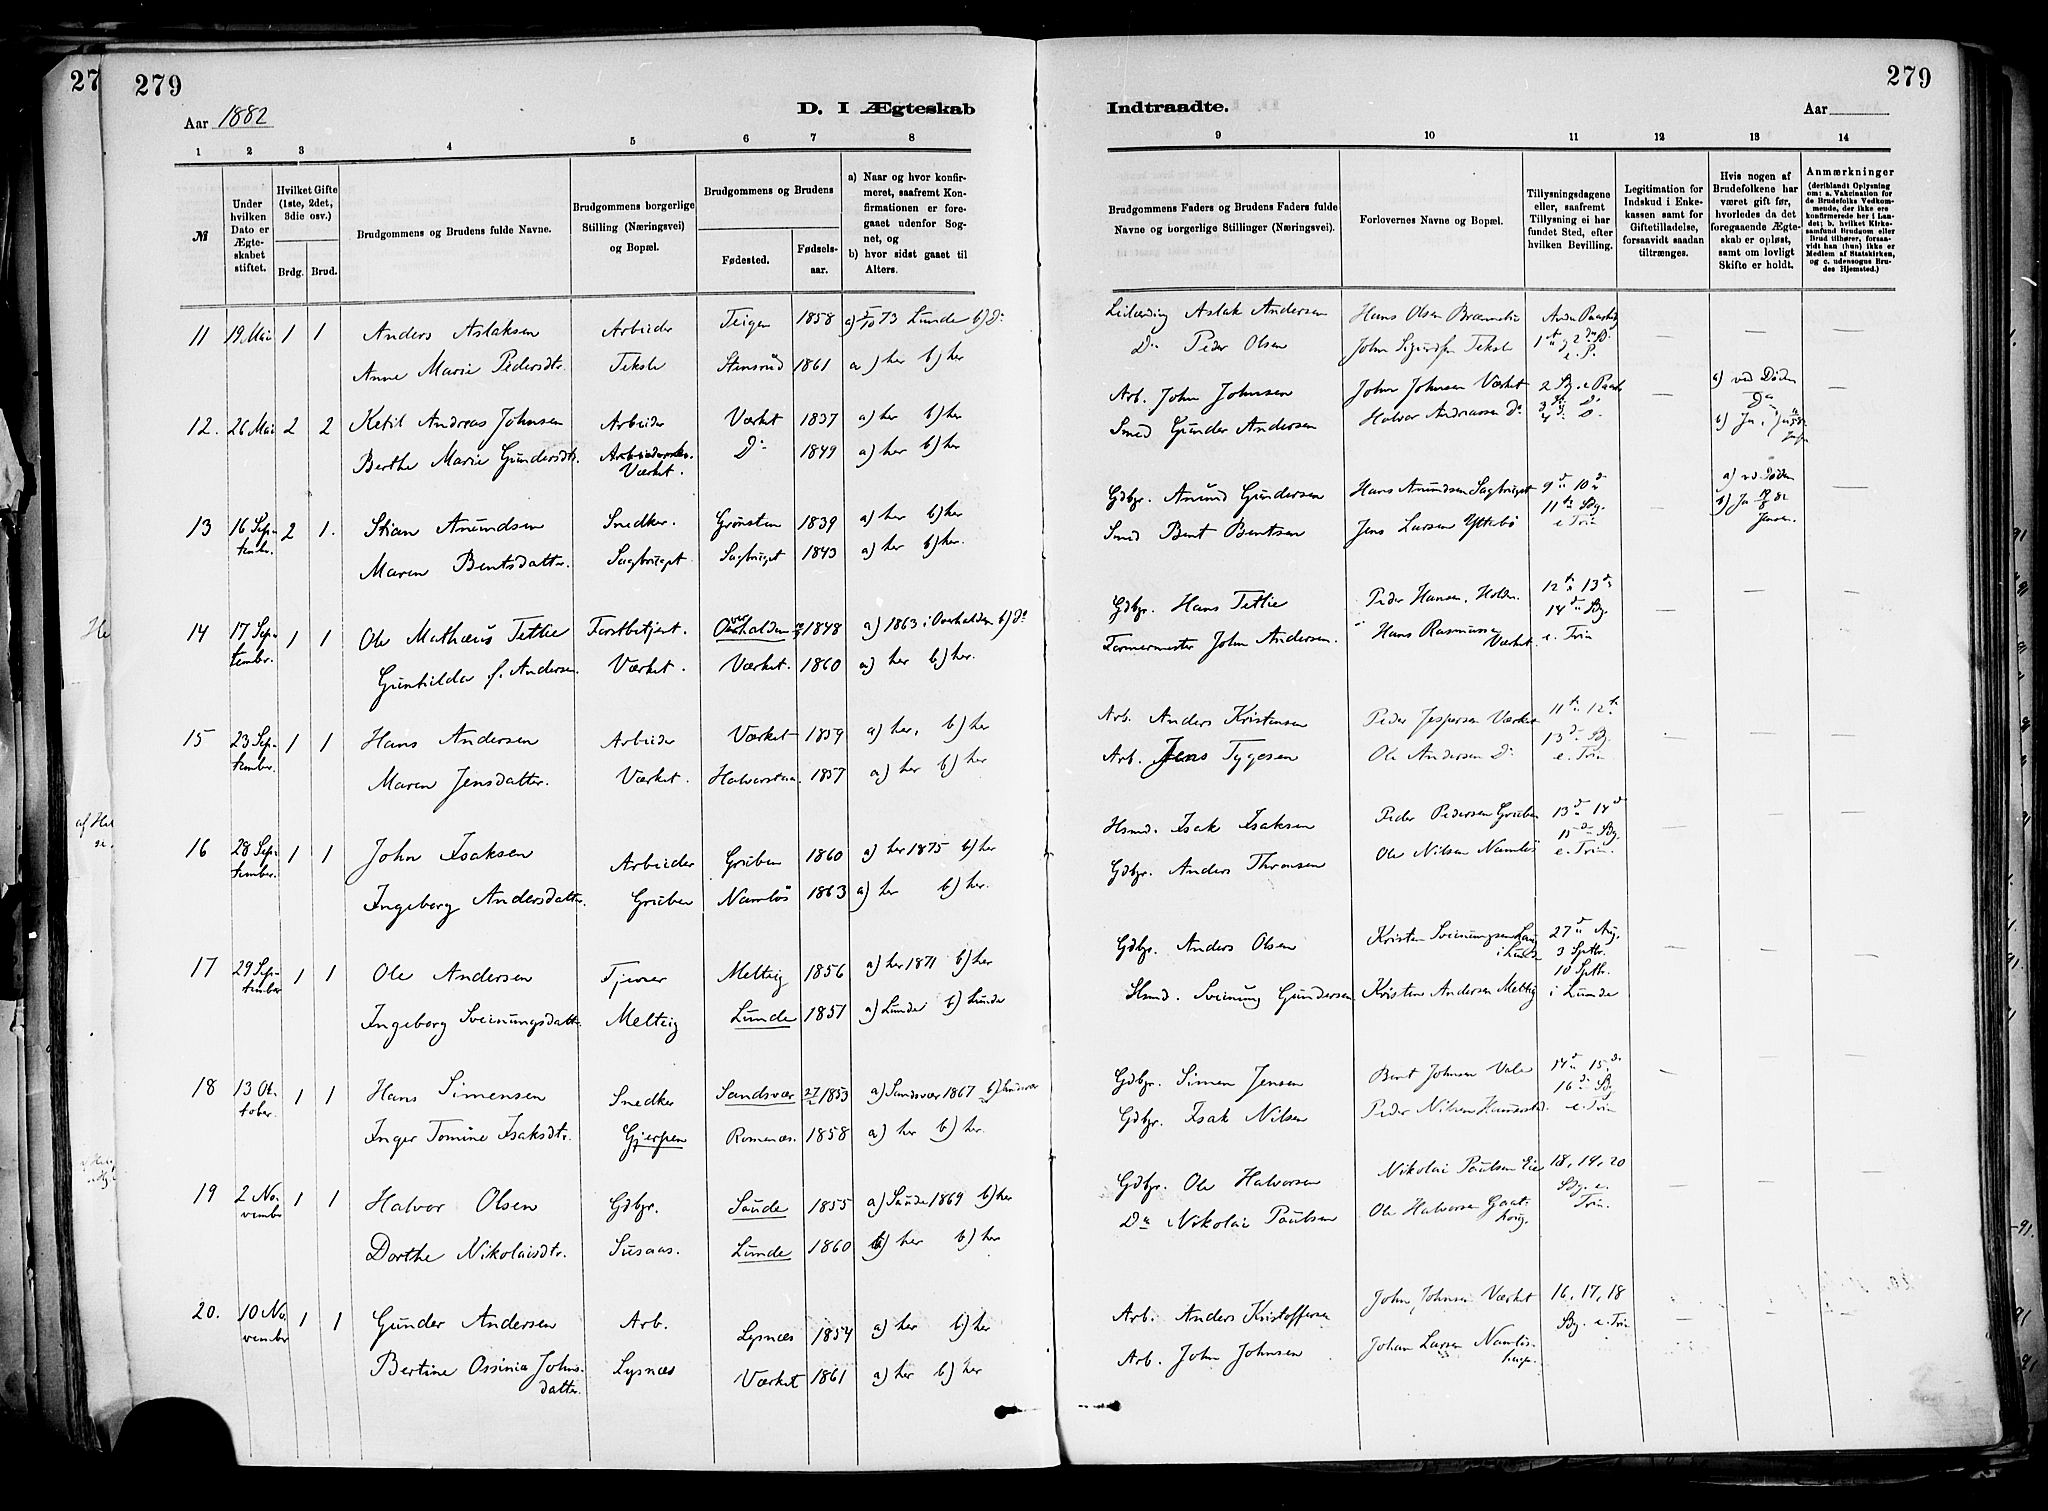 279
279
Aar 1882
D. I Ægteskab
Indtraadte.
Aar
1 2 3 4 5 6 7 8
9 10 11 12 13 14
№
Under hvilken Dato er Ægteskabet stiftet.
Hvilket Gifte (1ste, 2det, 3die osv.)
Brdg. Brud.
Brudgommens og Brudens fulde Navne.
Brudgommens borgerlige Stilling (Næringsvei) og Bopæl.
Brudgommens og Brudens
Fødested.
Fødselsaar.
a) Naar og hvor konfirmeret, saafremt Konfirmationen er foregaaet udenfor Sognet, og
b) hvor sidst gaaet til Alters.
Brudgommens Faders og Brudens Faders fulde Navne og borgerlige Stillinger (Næringsvei).
Forlovernes Navne og Bopæl.
Tillysningsdagene eller, saafremt Tillysning ei har fundet Sted, efter hvilken Bevilling.
Legitimation for Indskud i Enkekassen samt for Giftetilladelse, forsaavidt saadan tiltrænges.
Hvis nogen af Brudefolkene har været gift før, hvorledes da det foregaaende Ægteskab er opløst, samt om lovligt Skifte er holdt.
Anmærkninger
(deriblandt Oplysning om: a. Vakcination for Brudefolks Vedkommende, der ikke ere konfirmerede her i Landet; b. hvilket Kirkesamfund Brudgom eller Brud tilhører, forsaavidt han (hun) ikke er Medlem af Statskirken, og c. udensogns Brudes Hjemsted.)
11 19 Mai 1 1 Anders Aslaksen Arbeider Teigen 1858 a) 5/10 73 Lunde b) Do Leilænding Aslak Andersen Hans Olsen
Anne Marie Pedersdtr. Teksle Stensrud 1861 a) her b) her Do Peder Olsen John Sigurdsen Teksle
12. 26 Mai 2 2 Ketil Andreas Johnsen Arbeider Værket 1837 a) her b) her Arb. John Johnsen John Johnsen Værket a) ved Døden
Berthe Marie Gundersdtr. Værket. Do 1849 a) her b) her Smed Gunder Andersen Halvor Andreassen Do
13 16 September 2 1. Stian Anundsen Snedker. Grønsten 1839 a) her b) her Gdbgr. Anund Gundersen Hans Anundsen Sagbruget 9de 10de a) ved Døden
Maren Bentsdatter. Sagbruget Sagbruget 1843 a) her b) her. Smed Bent Bentsen Jens Larsen 11te Sdg. e. Trin b) Ja
14 17 September 1 1 Ole Mathæus Tetlie Forstbetjent. Overhalden 1848 a) 1863 i Overhalden b) Do Gdbgr. Hans Tetlie Peder Hansen, Holden 12te 13de
Gunhilda f. Andersen Værket. Værket. 1860 a) her b) her. Formermester John Andersen. Hans Rasmussen Værket. 14de Sdg. e. Trin
15 23 September. 1 1 Hans Andersen Arbeider Værket 1859 a) her, b) her Arb. Anders Kristensen Peder Jespersen Værket 11te 12te
Maren Jensdatter. Værket. 1857 a) her b) her Arb. Jens Tygesen Ole Andersen Do 13de Sdg. e. Trin
16 28 September. 1 1 John Isaksen Arbeider Gruben 1860 a) her 1875 b) her Hsmd. Isak Isaksen Peder Pedersen Gruben 13de 14de
Ingeborg Andersdatter. Gruben Namløs 1863 a) her b) her. Gdbgr. Anders Thronsen Ole Nilsen Namløs 15de Sdg. e. Trin.
17 29 September 1 1 Ole Andersen Melteig 1856 a) her 1871 b) her Gdbgr. Anders Olsen Kristen Sveinungsen i Lunde 27de Aug. 3 Septbr.
Ingeborg Sveinungsdatter. Melteig Lunde 1851 a) Lunde b) Lunde Hsmd. Sveinung Gundersen Kristen Andersen Melteig 10 Septbr. i Lunde
18 13 Oktober. 1 1 Hans Simensen Snedker Sandsvær 1853 a) Sandsvær 1867 b) Sandsvær Gdbgr. Simen Jensen Bent Johnsen Vale 14de 15de
Inger Tomine Isaksdtr. Gjerpen Romenæs. 1858 a) her b) her. Gdbgr. Isak Nilsen Peder Nilsen 16de Sdg. e. Trin
19 2 November 1 1 Halvor Olsen Gdbgr. Saude 1855 a) Saude 1869 b) her Gdbgr. Ole Halvorsen Nikolai Paulsen Eie 18, 19, 20
Dorthe Nikolaisdtr. Susaas. Lunde 1860 a) her b) her Do Nikolai Paulsen Ole Halvorsen Sdg. e. Trin.
20. 10 November 1 1 Gunder Andersen Arb. Lysnæs 1854 a) her b) her Arb. Anders Kristoffersen John Johnsen Værket 16, 17, 18
Bertine Ossinia Johnsdatter. Lysnæs Værket 1861 a) her b) her Arb. John Johnsen Johan Larsen Sdg. e. Trin